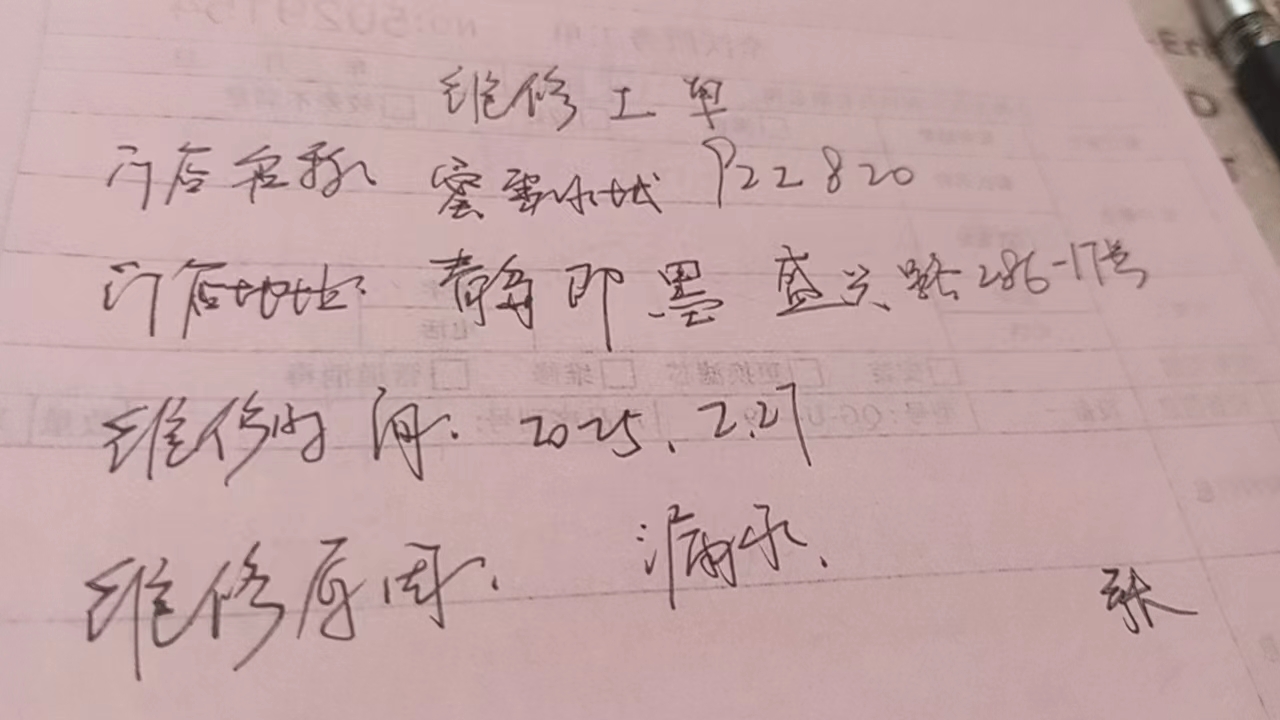 维修工单
门店名称 蜜雪冰城 P22820
门店地址: 青岛 即墨 盛兴路286-17号
维修时间: 2025.2.27
维修原因: 漏水.
张